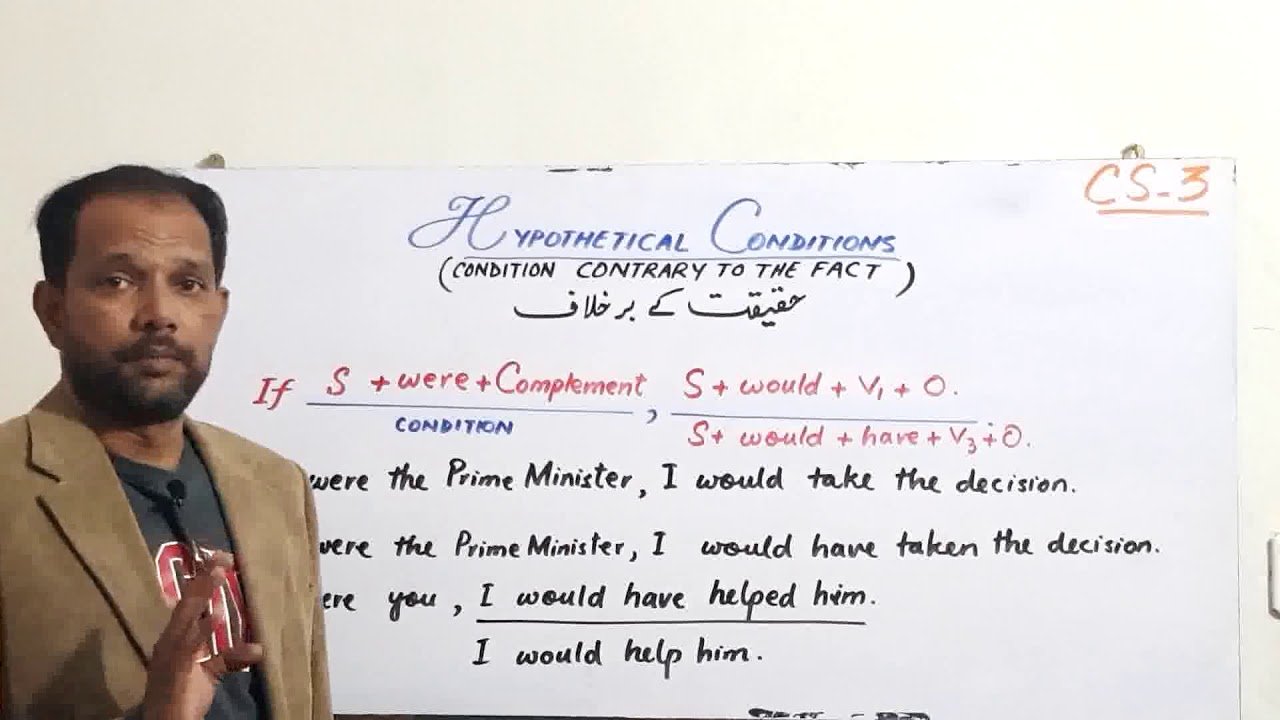 CS-3
HYPOTHETICAL CONDITIONS
(CONDITION CONTRARY TO THE FACT)
حقیقت کے برخلاف
If S + were + Complement, S + would + V1 + O.
CONDITION
S + would + have + V3 + O.
were the Prime Minister, I would take the decision.
were the Prime Minister, I would have taken the decision.
ere you, I would have helped him.
I would help him.